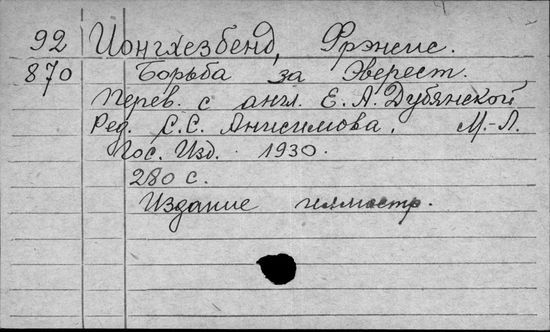 92 Ионгхезбенд, Фрэнсис.
870 Борьба за Эверест.
Перев. с англ. Е. А. Дубянской
Ред. С. С. Анисимова. М.-Л.
Гос. Изд. 1930.
280 с.
Издание иллюстр.